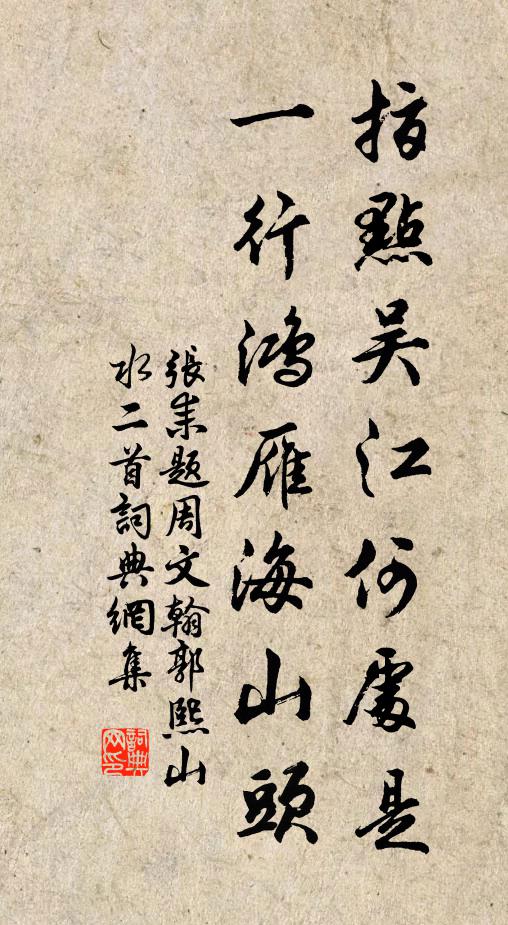 指點吳江何處是
一行鴻雁海山頭
張耒題周文翰郭熙山
水二首詞典網集
詞典網印